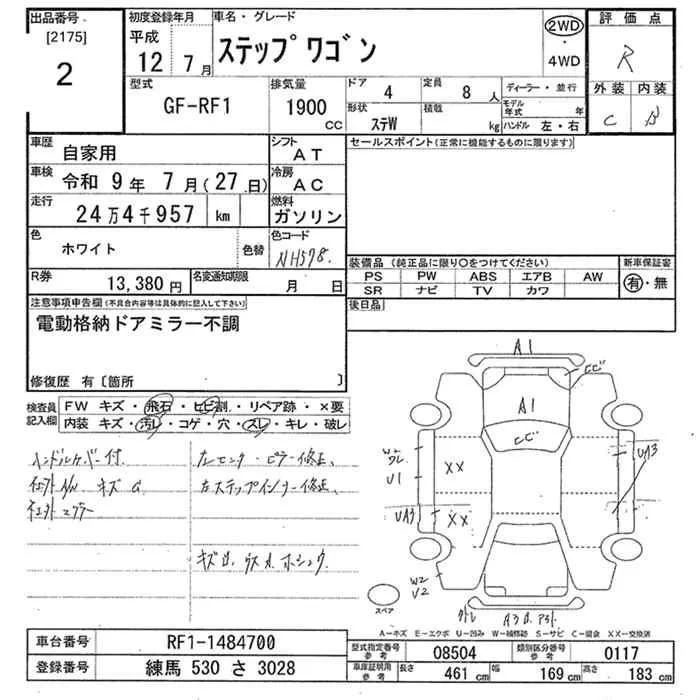 出品番号
[2175]
2
初度登録年月
平成
12 7月
車名・グレード
ステップワゴン
2WD
・
4WD
評価点
R
外装 内装
C B
型式
GF-RF1
排気量
1900
CC
ドア
4
定員
8 人
形状
ステW
積載
kg
ディーラー・並行
モデル年式 年
ハンドル 左・右
車歴
自家用
シフト
AT
車検
令和 9年 7月(27日)
冷房
AC
走行
24万4千957 km
燃料
ガソリン
色
ホワイト
色替
色コード
NH578
R券
13,380 円
名変通知期限
月 日
セールスポイント(正常に機能するものに限ります)
装備品(純正品に限り○をつけてください)
PS PW ABS エアB AW
SR ナビ TV カワ
新車保証書
有・無
後日品
注意事項申告欄(不具合内容等は具体的に記入して下さい)
電動格納ドアミラー不調
修復歴 有〔箇所 〕
検査員記入欄
FW キズ・飛石・ヒビ割・リペア跡・×要
内装 キズ・汚レ・コゲ・穴・スレ・キレ・破レ
ハンドルカバー付
社外A/W キズ
社外ミラー
センターピラー修正、
ステップインナー修正、
A1
A1
XX
XX
U1
UA3
UA3
W2
U2
スペア
A−キズ E−エクボ U−凹み W−補修跡 S−サビ C−腐食 XX−交換済
車台番号
RF1-1484700
登録番号
練馬 530 さ 3028
型式指定番号
参考
08504
類別区分番号
参考
0117
車庫証明用
参考
長さ 461 cm
幅 169 cm
高さ 183 cm